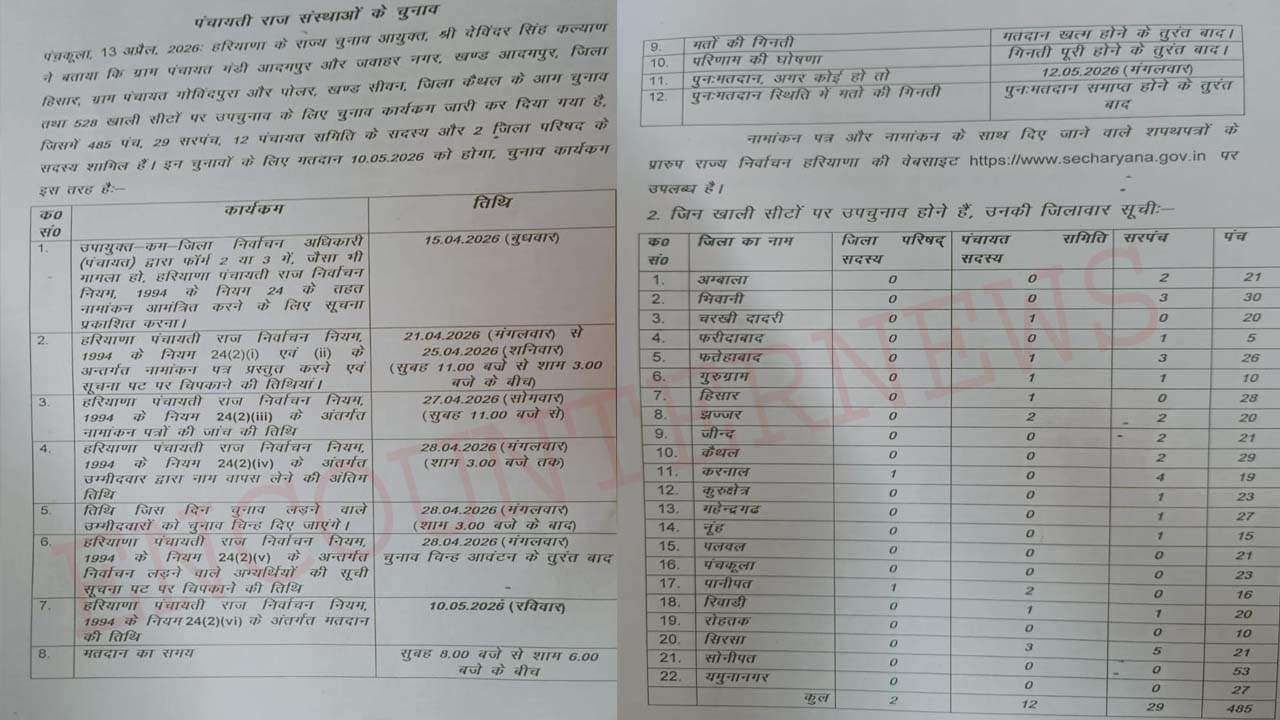 पंचायती राज संस्थाओं के चुनाव
पंचकूला, 13 अप्रैल, 2026: हरियाणा के राज्य चुनाव आयुक्त, श्री देविंदर सिंह कल्याण
ने बताया कि ग्राम पंचायत मंडी आदमपुर और जवाहर नगर, खण्ड आदमपुर, जिला
हिसार, ग्राम पंचायत गोविंदपुरा और पोलर, खण्ड सीवन, जिला कैथल के आम चुनाव
तथा 528 खाली सीटों पर उपचुनाव के लिए चुनाव कार्यकम जारी कर दिया गया है,
जिसमें 485 पंच, 29 सरपंच, 12 पंचायत समिति के सदस्य और 2 जिला परिषद के
सदस्य शामिल हैं। इन चुनावों के लिए मतदान 10.05.2026 को होगा, चुनाव कार्यकम
इस तरह है:—
क0 सं0 कार्यकम तिथि
1. उपायुक्त-कम-जिला निर्वाचन अधिकारी 15.04.2026 (बुधवार)
(पंचायत) द्वारा फॉर्म 2 या 3 में, जैसा भी
मामला हो, हरियाणा पंचायती राज निर्वाचन
नियम, 1994 के नियम 24 के तहत
नामांकन आमंत्रित करने के लिए सूचना
प्रकाशित करना।
2. हरियाणा पंचायती राज निर्वाचन नियम, 21.04.2026 (मंगलवार) से
1994 के नियम 24(2)(i) एवं (ii) के 25.04.2026 (शनिवार)
अन्तर्गत नामांकन पत्र प्रस्तुत करने एवं (सुबह 11.00 बजे से शाम 3.00
सूचना पट पर चिपकाने की तिथियाँ। बजे के बीच)
3. हरियाणा पंचायती राज निर्वाचन नियम, 27.04.2026 (सोमवार)
1994 के नियम 24(2)(iii) के अंतर्गत (सुबह 11.00 बजे से)
नामांकन पत्रों की जांच की तिथि
4. हरियाणा पंचायती राज निर्वाचन नियम, 28.04.2026 (मंगलवार)
1994 के नियम 24(2)(iv) के अंतर्गत (शाम 3.00 बजे तक)
उम्मीदवार द्वारा नाम वापस लेने की अंतिम
तिथि
5. तिथि जिस दिन चुनाव लड़ने वाले 28.04.2026 (मंगलवार)
उम्मीदवारों को चुनाव चिन्ह दिए जाएंगे। (शाम 3.00 बजे के बाद)
6. हरियाणा पंचायती राज निर्वाचन नियम, 28.04.2026 (मंगलवार)
1994 के नियम 24(2)(v) के अन्तर्गत चुनाव चिन्ह आवंटन के तुरंत बाद
निर्वाचन लड़ने वाले अभ्यर्थियों की सूची
सूचना पट पर चिपकाने की तिथि
7. हरियाणा पंचायती राज निर्वाचन नियम, 10.05.2026 (रविवार)
1994 के नियम 24(2)(vi) के अंतर्गत मतदान
की तिथि
8. मतदान का समय सुबह 8.00 बजे से शाम 6.00
बजे के बीच
9. मतों की गिनती मतदान खत्म होने के तुरंत बाद।
10. परिणाम की घोषणा गिनती पूरी होने के तुरंत बाद।
11. पुनःमतदान, अगर कोई हो तो 12.05.2026 (मंगलवार)
12. पुनःमतदान स्थिति में मतों की गिनती पुनःमतदान समाप्त होने के तुरंत
बाद
नामांकन पत्र और नामांकन के साथ दिए जाने वाले शपथपत्रों के
प्रारुप राज्य निर्वाचन हरियाणा की वेबसाइट https://www.secharyana.gov.in पर
उपलब्ध है।
2. जिन खाली सीटों पर उपचुनाव होने हैं, उनकी जिलावार सूची:—
क0 सं0 जिला का नाम जिला परिषद् सदस्य पंचायत समिति सदस्य सरपंच पंच
1. अम्बाला 0 0 2 21
2. भिवानी 0 0 3 30
3. चरखी दादरी 0 1 0 20
4. फरीदाबाद 0 0 1 5
5. फतेहाबाद 0 1 3 26
6. गुरुग्राम 0 1 1 10
7. हिसार 0 1 0 28
8. झज्जर 0 2 2 20
9. जीन्द 0 0 2 21
10. कैथल 0 0 2 29
11. करनाल 1 0 4 19
12. कुरुक्षेत्र 0 0 1 23
13. महेन्द्रगढ 0 0 1 27
14. नूंह 0 0 1 15
15. पलवल 0 0 0 21
16. पंचकूला 0 0 0 23
17. पानीपत 1 2 0 16
18. रिवाडी 0 1 1 20
19. रोहतक 0 0 0 10
20. सिरसा 0 3 5 21
21. सोनीपत 0 0 0 53
22. यमुनानगर 0 0 0 27
कुल 2 12 29 485
ENCOUNTERNEWS